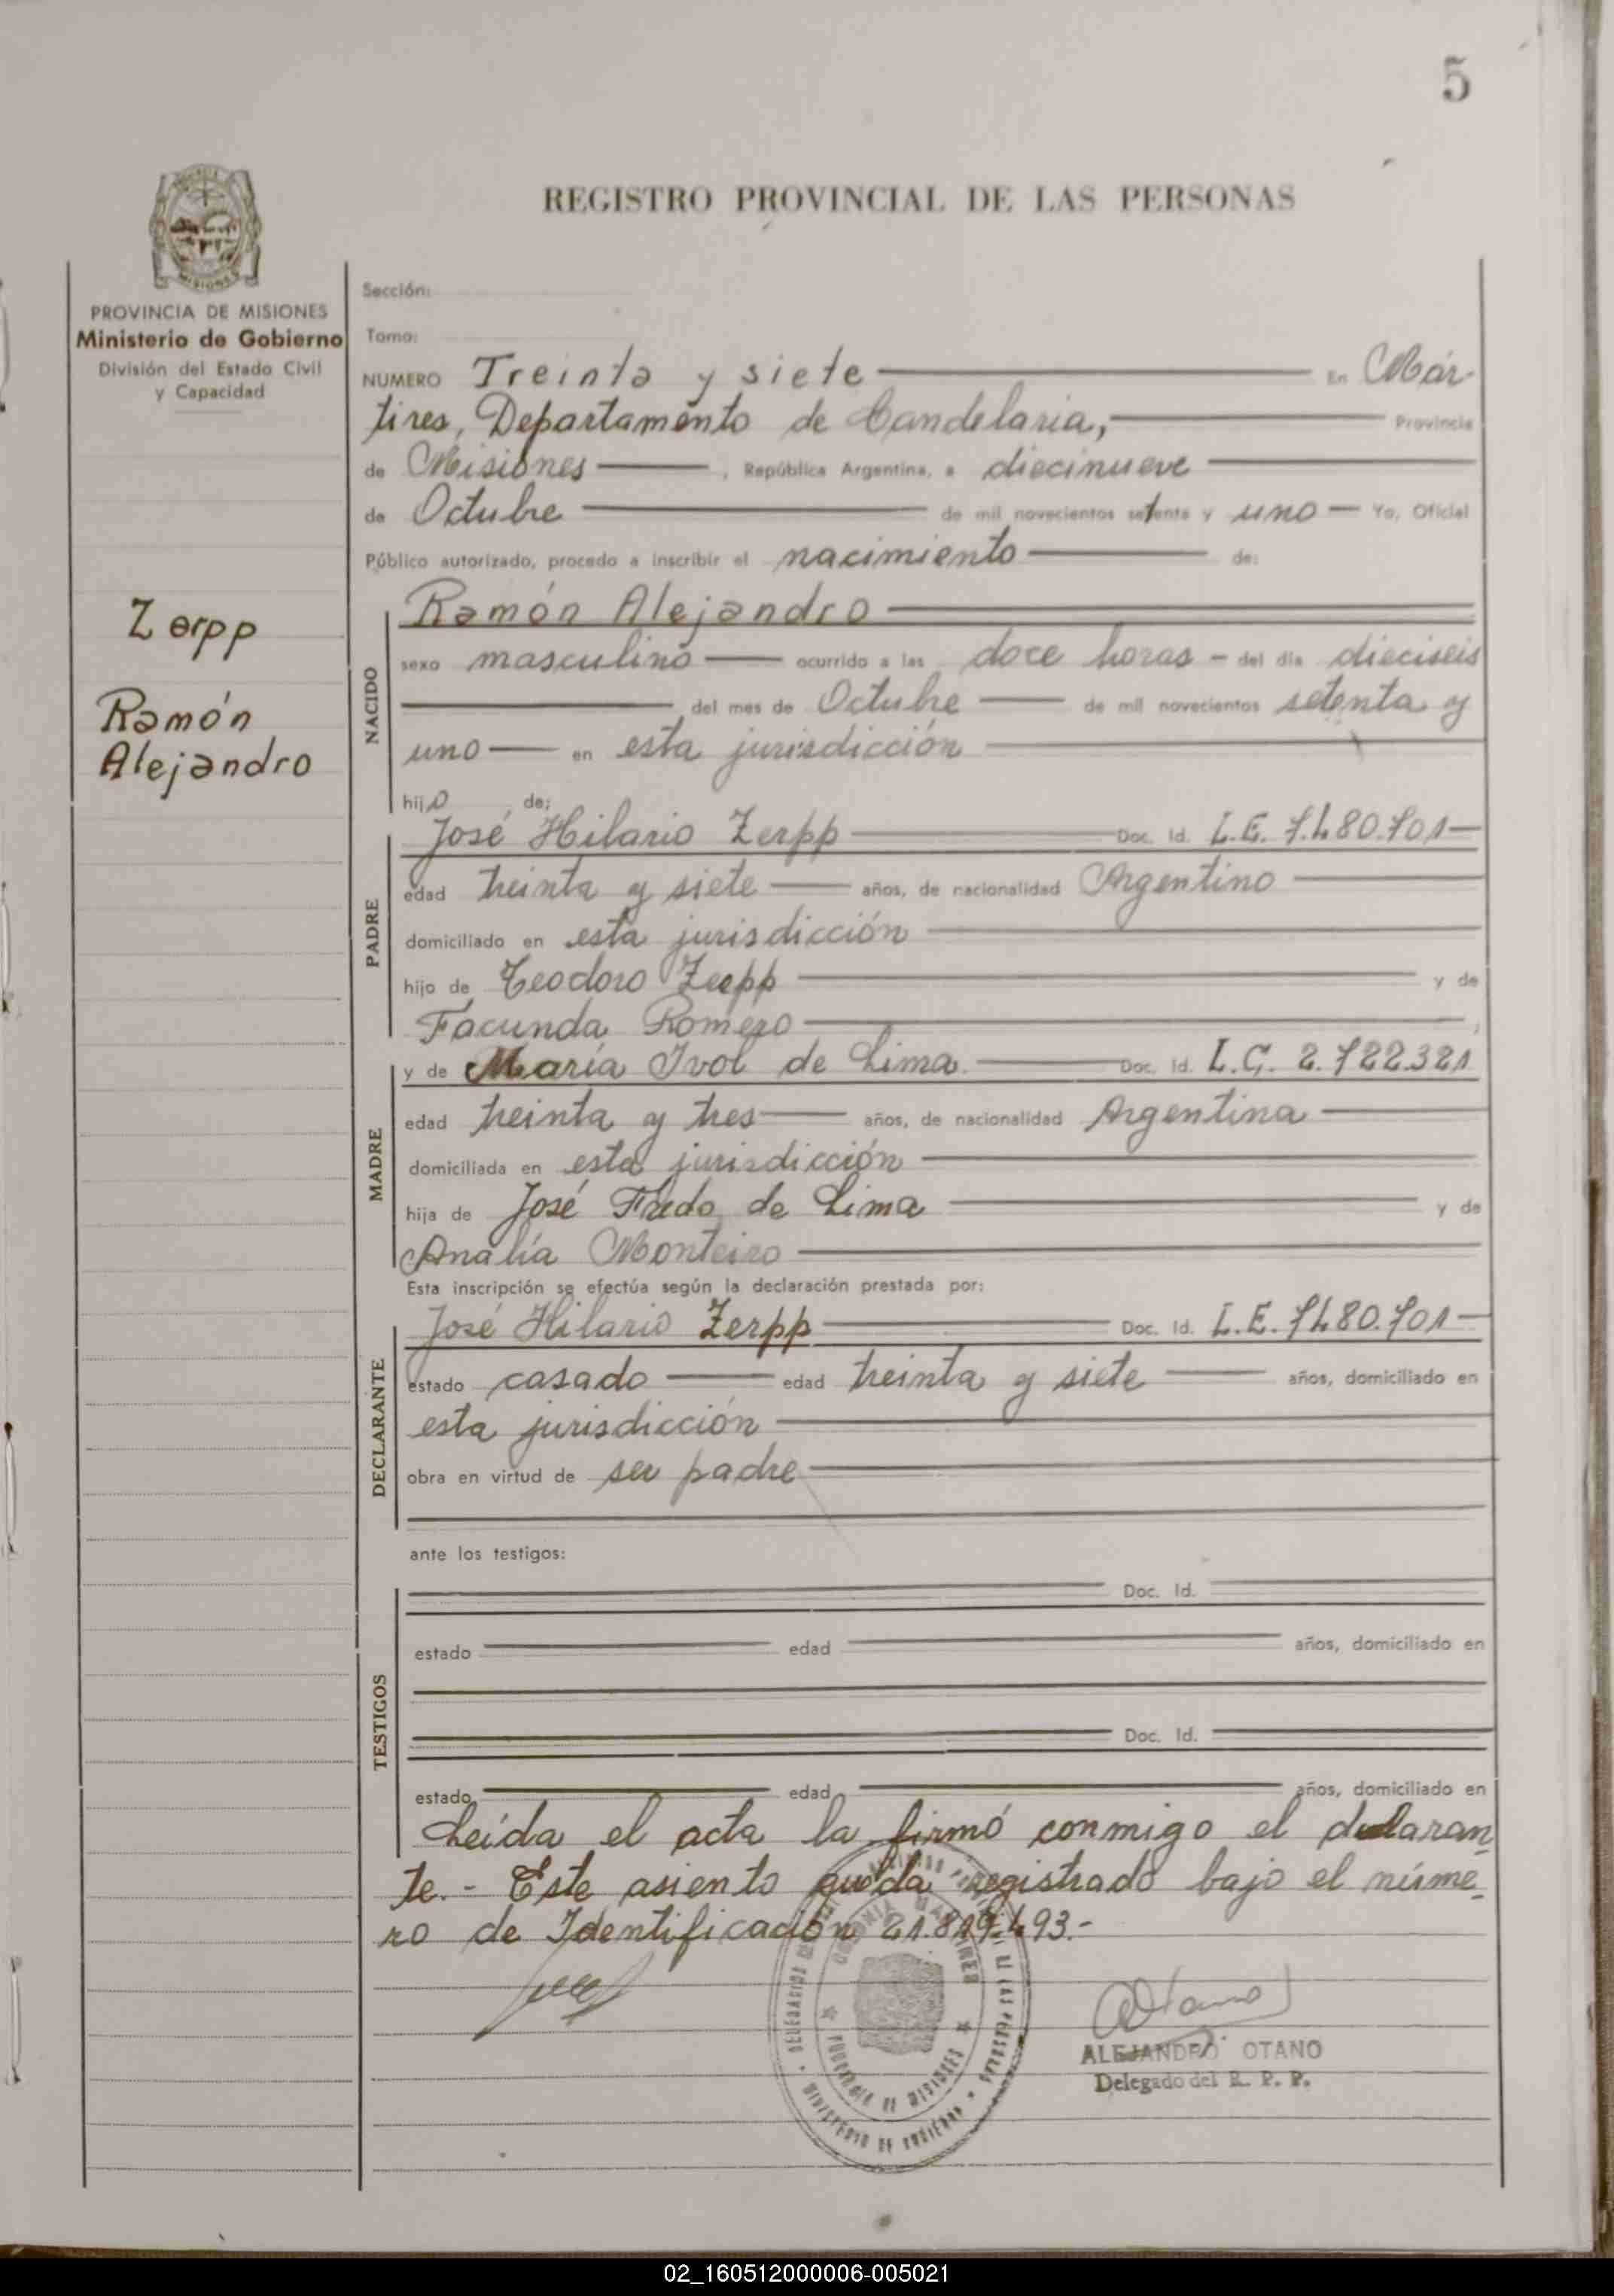 5
REGISTRO PROVINCIAL DE LAS PERSONAS
MISIONES
PROVINCIA DE MISIONES
Ministerio de Gobierno
División del Estado Civil
y Capacidad
Zerpp
Ramón
Alejandro
Sección:
Tomo:
NUMERO Treinta y siete En Már-
tires, Departamento de Candelaria, Provincia
de Misiones, República Argentina, a diecinueve
de Octubre de mil novecientos setenta y uno Yo, Oficial
Público autorizado, procedo a inscribir el nacimiento de:
NACIDO
Ramón Alejandro
sexo masculino ocurrido a las doce horas - del día dieciseis
del mes de Octubre de mil novecientos setenta y
uno en esta jurisdicción
hijo de:
PADRE
José Hilario Zerpp Doc. Id. L.E. 7.480.701
edad treinta y siete años, de nacionalidad Argentino
domiciliado en esta jurisdicción
hijo de Teodoro Zerpp y de
Facunda Romero
MADRE
y de María Ivol de Lima Doc. Id. L.C. 2.722.321
edad treinta y tres años, de nacionalidad Argentina
domiciliada en esta jurisdicción
hija de José Fredo de Lima y de
Analía Monteiro
Esta inscripción se efectúa según la declaración prestada por:
DECLARANTE
José Hilario Zerpp Doc. Id. L.E. 7480.701
estado casado edad treinta y siete años, domiciliado en
esta jurisdicción
obra en virtud de ser padre
ante los testigos:
TESTIGOS
Doc. Id.
estado edad años, domiciliado en
Doc. Id.
estado edad años, domiciliado en
Leída el acta la firmó conmigo el declaran
te.- Este asiento queda registrado bajo el núme
ro de Identificación 21.819.493.-
COLONIA MARTIRES
PROVINCIA DE MISIONES
MINISTERIO DE GOBIERNO
Otano
ALEJANDRO OTANO
Delegado del R. P. P.
02_160512000006-005021